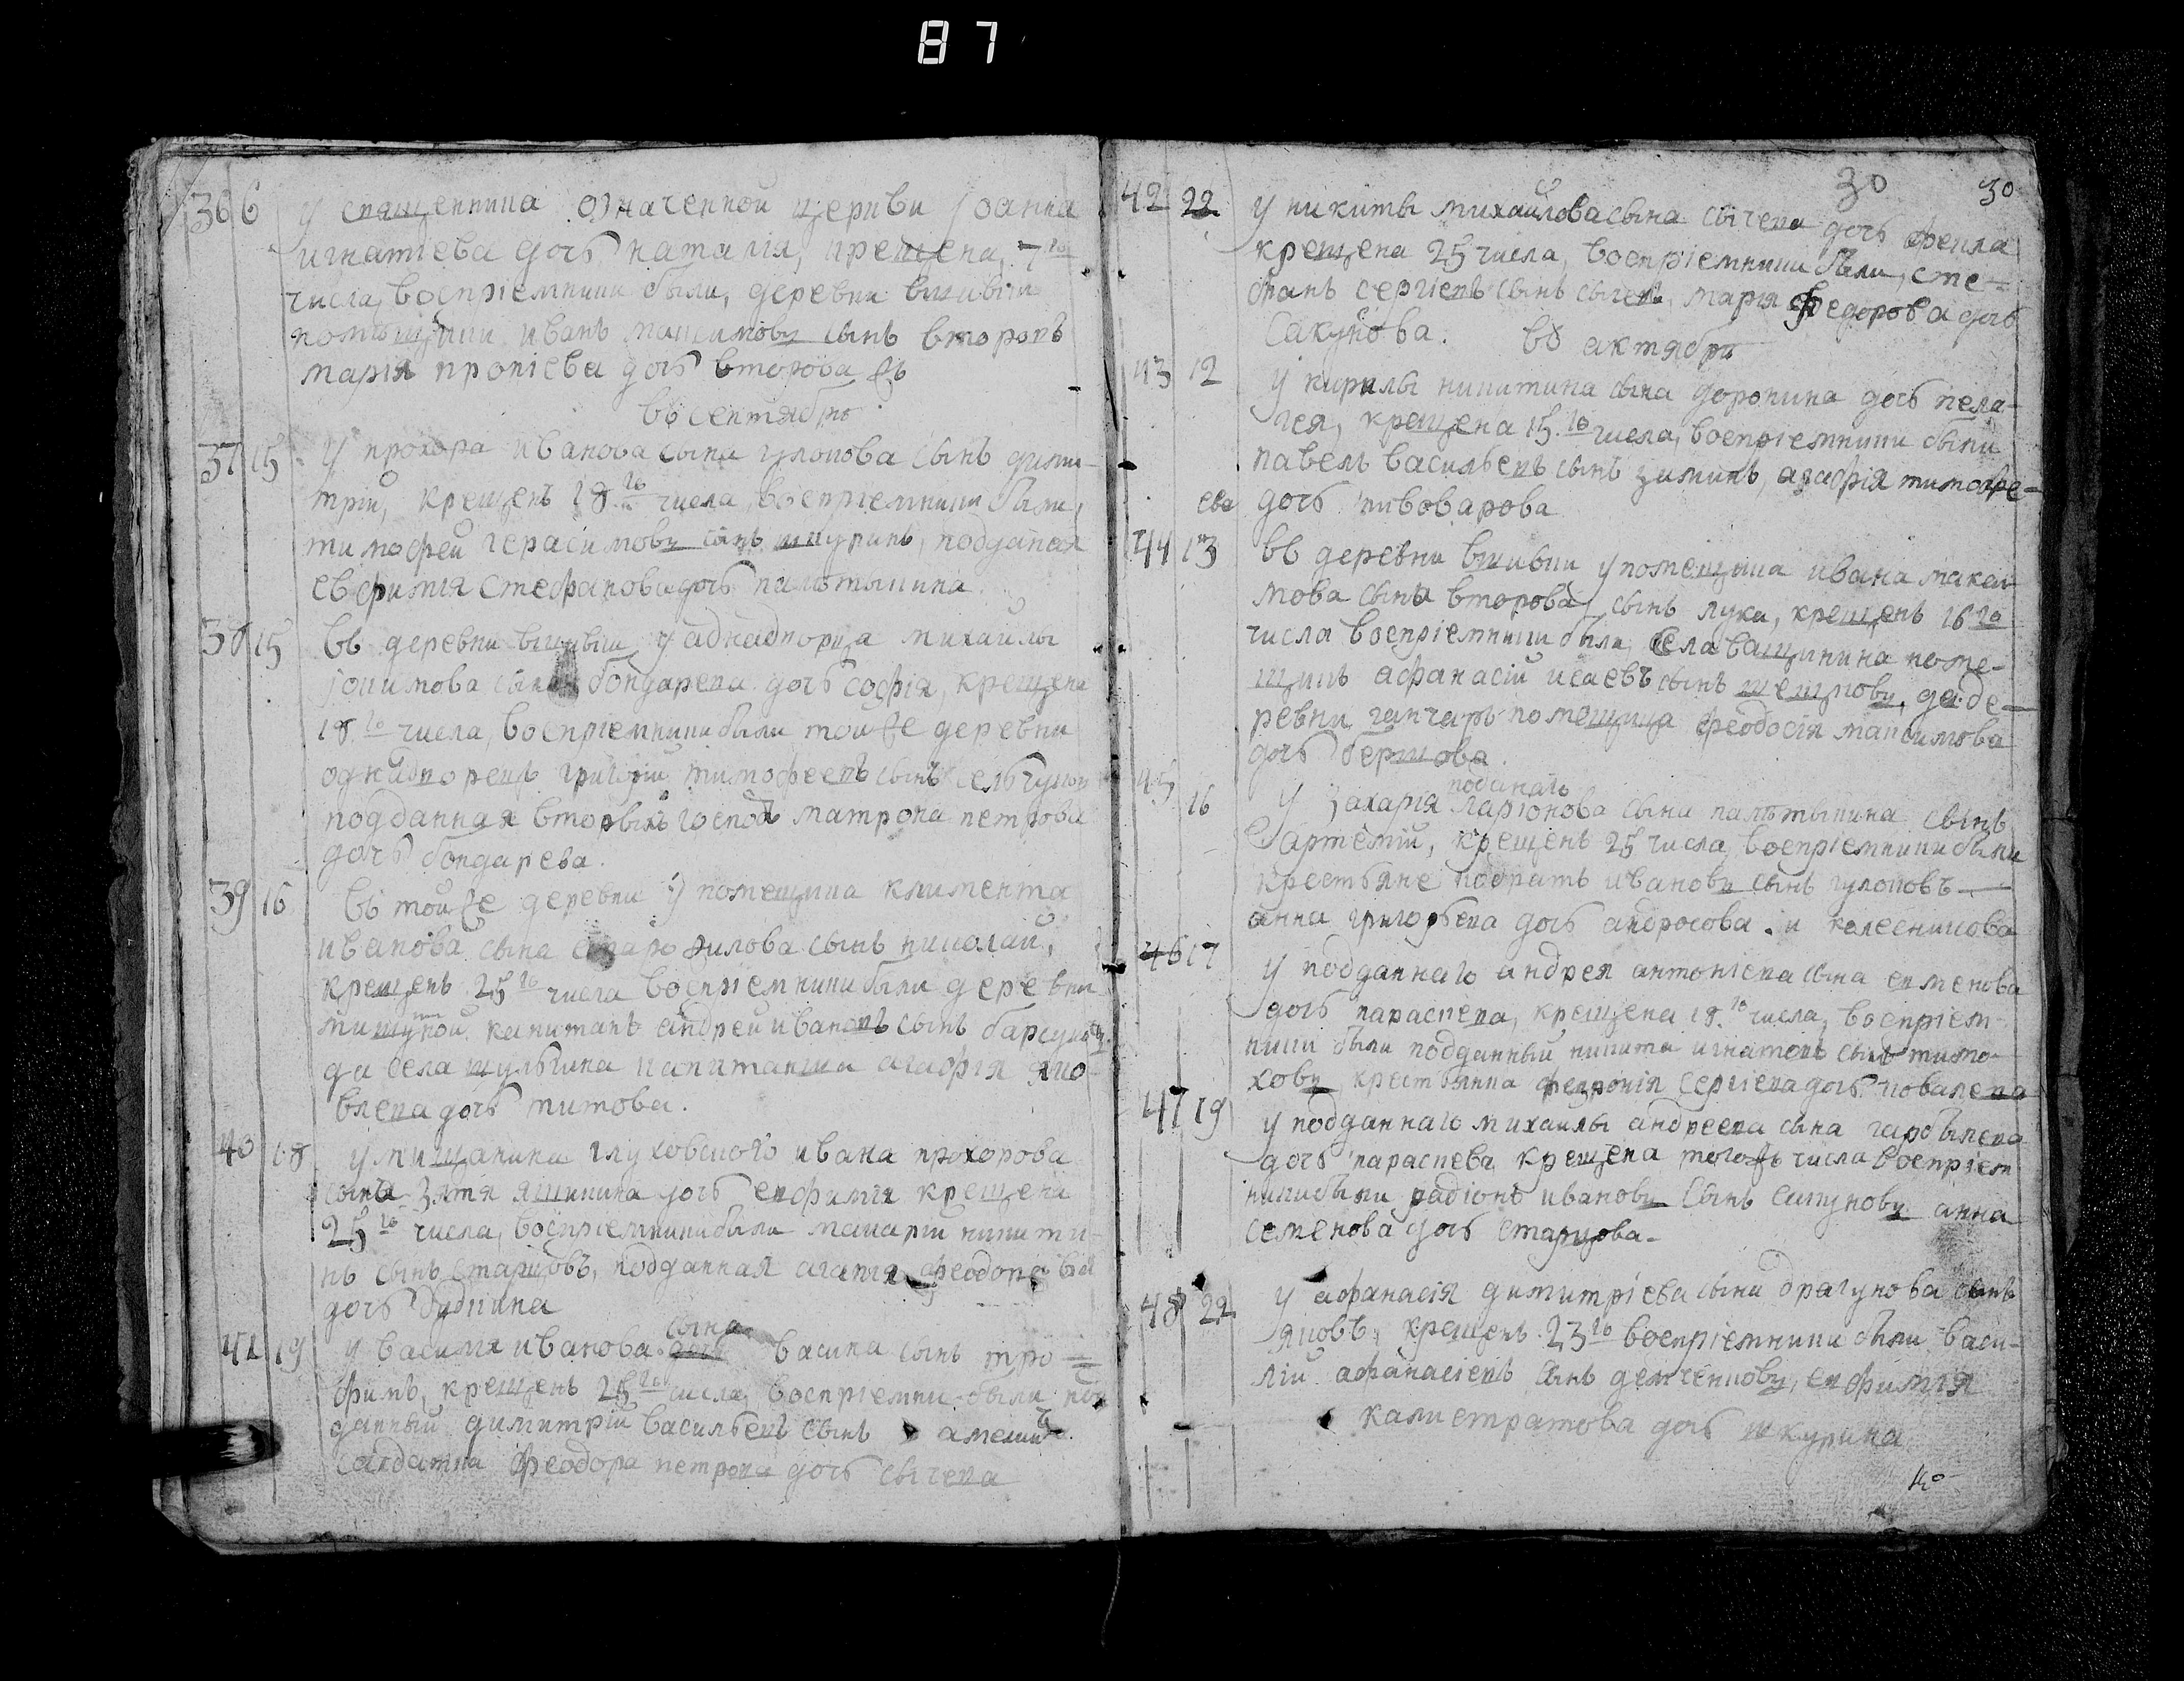 87
36 6 У священника означенной церкви Iоанна
игнатiева дочь наталiя, крещена 7го
числа, воспрiемники были, деревни вшивки
помѣщики иванъ максимовъ сынъ второвъ
марiя прокiева дочь второва жъ
въ сентябрѣ
37 15 У прохора иванова сына гулокова сынъ дими-
трiй, крещенъ 18.го числа, воспрiемники были,
тимофей герасимовъ сынъ шкуринъ, подданая
евфимiя стефанова дочь
38 15 въ деревни вшивки у аднадворца михаилы
бондарева дочь софiя, крещена
18.го числа, воспрiемники были той же деревни
однадворецъ григорiй тимофеевъ сынъ
подданная вторыхъ господъ матрона петрова
дочь бондарева.
39 16 въ той же деревни у помещика климента
иванова сына сынъ николай,
крещенъ 25го числа воспрiемники были деревни
капитанъ андрей ивановъ сынъ
да села шульгина капитанша агафiя яко-
влева дочь титова.
40 18 у мищанина глуховского ивана прохорова
сына зятя яцинина дочь евфимiя крещена
25го числа, воспрiемники были макарiй никити-
нъ сынъ старцовъ, подданная агапiя
дочь
41 19 у василiя иванова сына васика сынъ тро-
фимъ, крещенъ 25го числа, воспрiемни были под
данный димитрiй васильевъ сынъ
салдатка феодора петрова дочь сычева
30 30
42 22 у никиты михайлова сына сычева дочь фекла
крещена 25 числа, воспрiемники были, сте-
фанъ сергiевъ сынъ сычевъ, марiя федорова дочь
Сакунова. въ актябри
43 12 у кирилы никитина сына доронина дочь пела-
гея, крещена 15.го числа, воспрiемники были
павелъ васильевъ сынъ зиминъ, агафiя тимофе-
ева дочь пивоварова
44 13 въ деревни вшивки у помещика ивана макси
мова сына второва сынъ лука, крещенъ 16го
числа воспрiемники были, села ващинина поме-
щикъ афанасiй исаевъ сынъ да де-
ревни ганчаръ помещица феодосiя максимова
дочь
подданаго
45 16 У захарiя ларiонова сына сынъ
артемiй, крещенъ 25 числа воспрiемники были
крестьяне кодратъ ивановъ сынъ гулоковъ
анна григорьева дочь андросова. и колесникова
46 17 у подданнаго андрея антонiева сына
дочь параскева, крещена 18.го числа, воспрiем-
ники были подданный никита игнатовъ сынъ тимо-
ховъ крестьянка феврония сергiева дочь ковалева
47 19 у подданнаго михаилы андреева сына
дочь параскева крещена того жъ числа воспрiем
ники были радiонъ ивановъ сынъ сакуновъ анна
семенова дочь старцова.
48 22 у афанасiя димитрiева сына драгунова сынъ
яковъ, крещенъ 23го воспрiемники были васи-
лiй афанасiевъ сынъ демченковъ, евфимiя
калистратова дочь шкурина